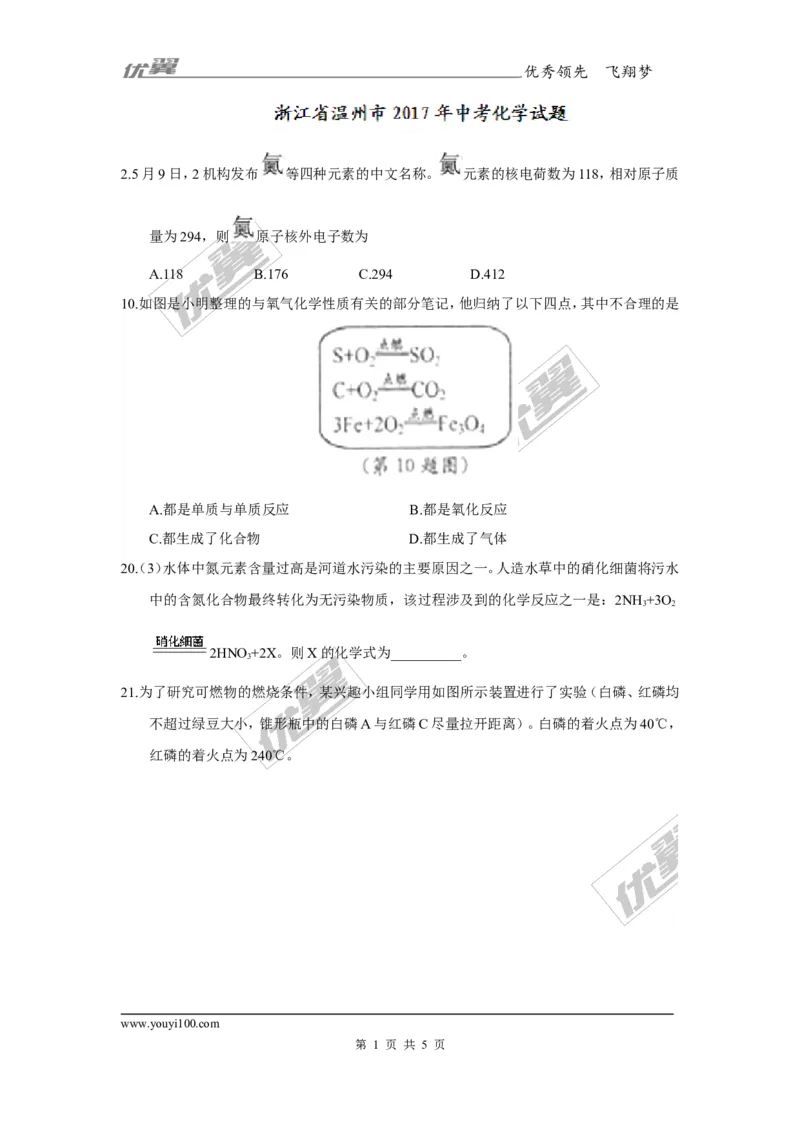 优翼
优秀领先 飞翔梦
浙江省温州市2017年中考化学试题
2.5月9日，2机构发布鿫等四种元素的中文名称。鿫元素的核电荷数为118，相对原子质
量为294，则鿫原子核外电子数为
A.118 B.176 C.294 D.412
10.如图是小明整理的与氧气化学性质有关的部分笔记，他归纳了以下四点，其中不合理的是
S+O₂ 点燃 SO₂
C+O₂ 点燃 CO₂
3Fe+2O₂ 点燃 Fe₃O₄
(第10题图)
A.都是单质与单质反应 B.都是氧化反应
C.都生成了化合物 D.都生成了气体
20.（3）水体中氮元素含量过高是河道水污染的主要原因之一。人造水草中的硝化细菌将污水
中的含氮化合物最终转化为无污染物质，该过程涉及到的化学反应之一是：2NH₃+3O₂
硝化细菌 2HNO₃+2X。则X的化学式为__________。
21.为了研究可燃物的燃烧条件，某兴趣小组同学用如图所示装置进行了实验（白磷、红磷均
不超过绿豆大小，锥形瓶中的白磷A与红磷C尽量拉开距离）。白磷的着火点为40℃，
红磷的着火点为240℃。
优翼
优翼
优翼
优翼
www.youyi100.com
第 1 页 共 5 页